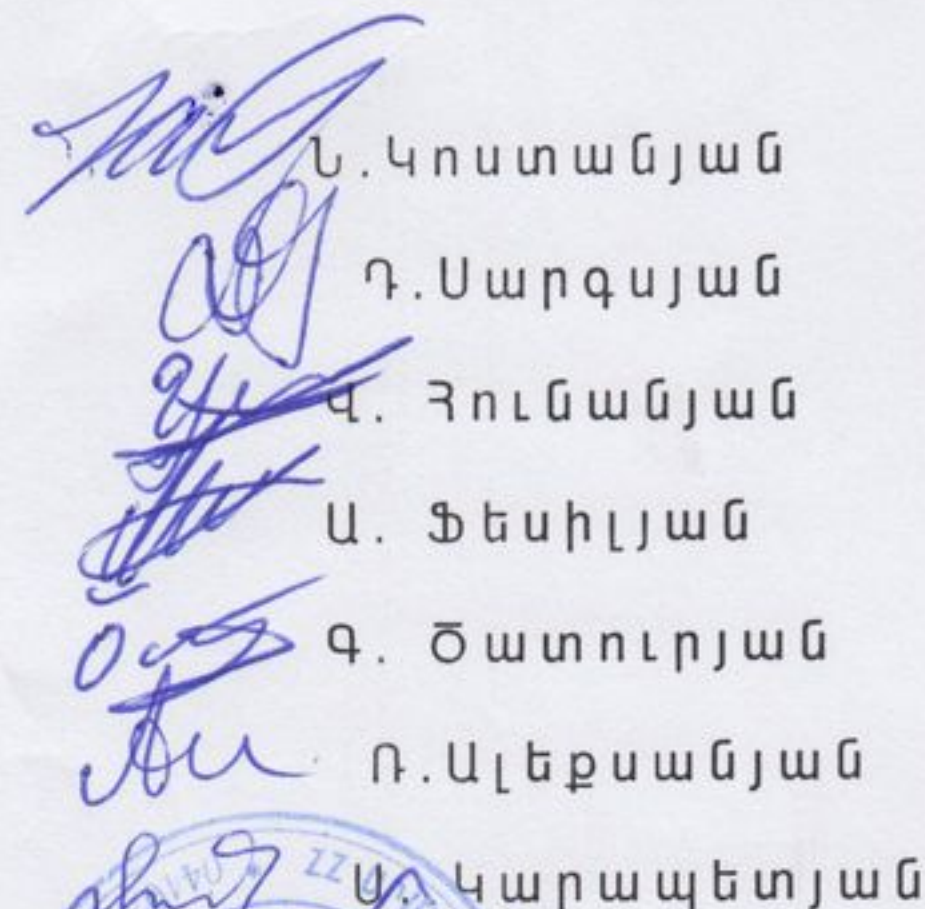 Ն.Կոստանյան
Դ.Սարգսյան
Վ. Հունանյան
Ա. Ֆեսիլյան
Գ. Ծատուրյան
Ռ.Ալեքսանյան
Կարապետյան